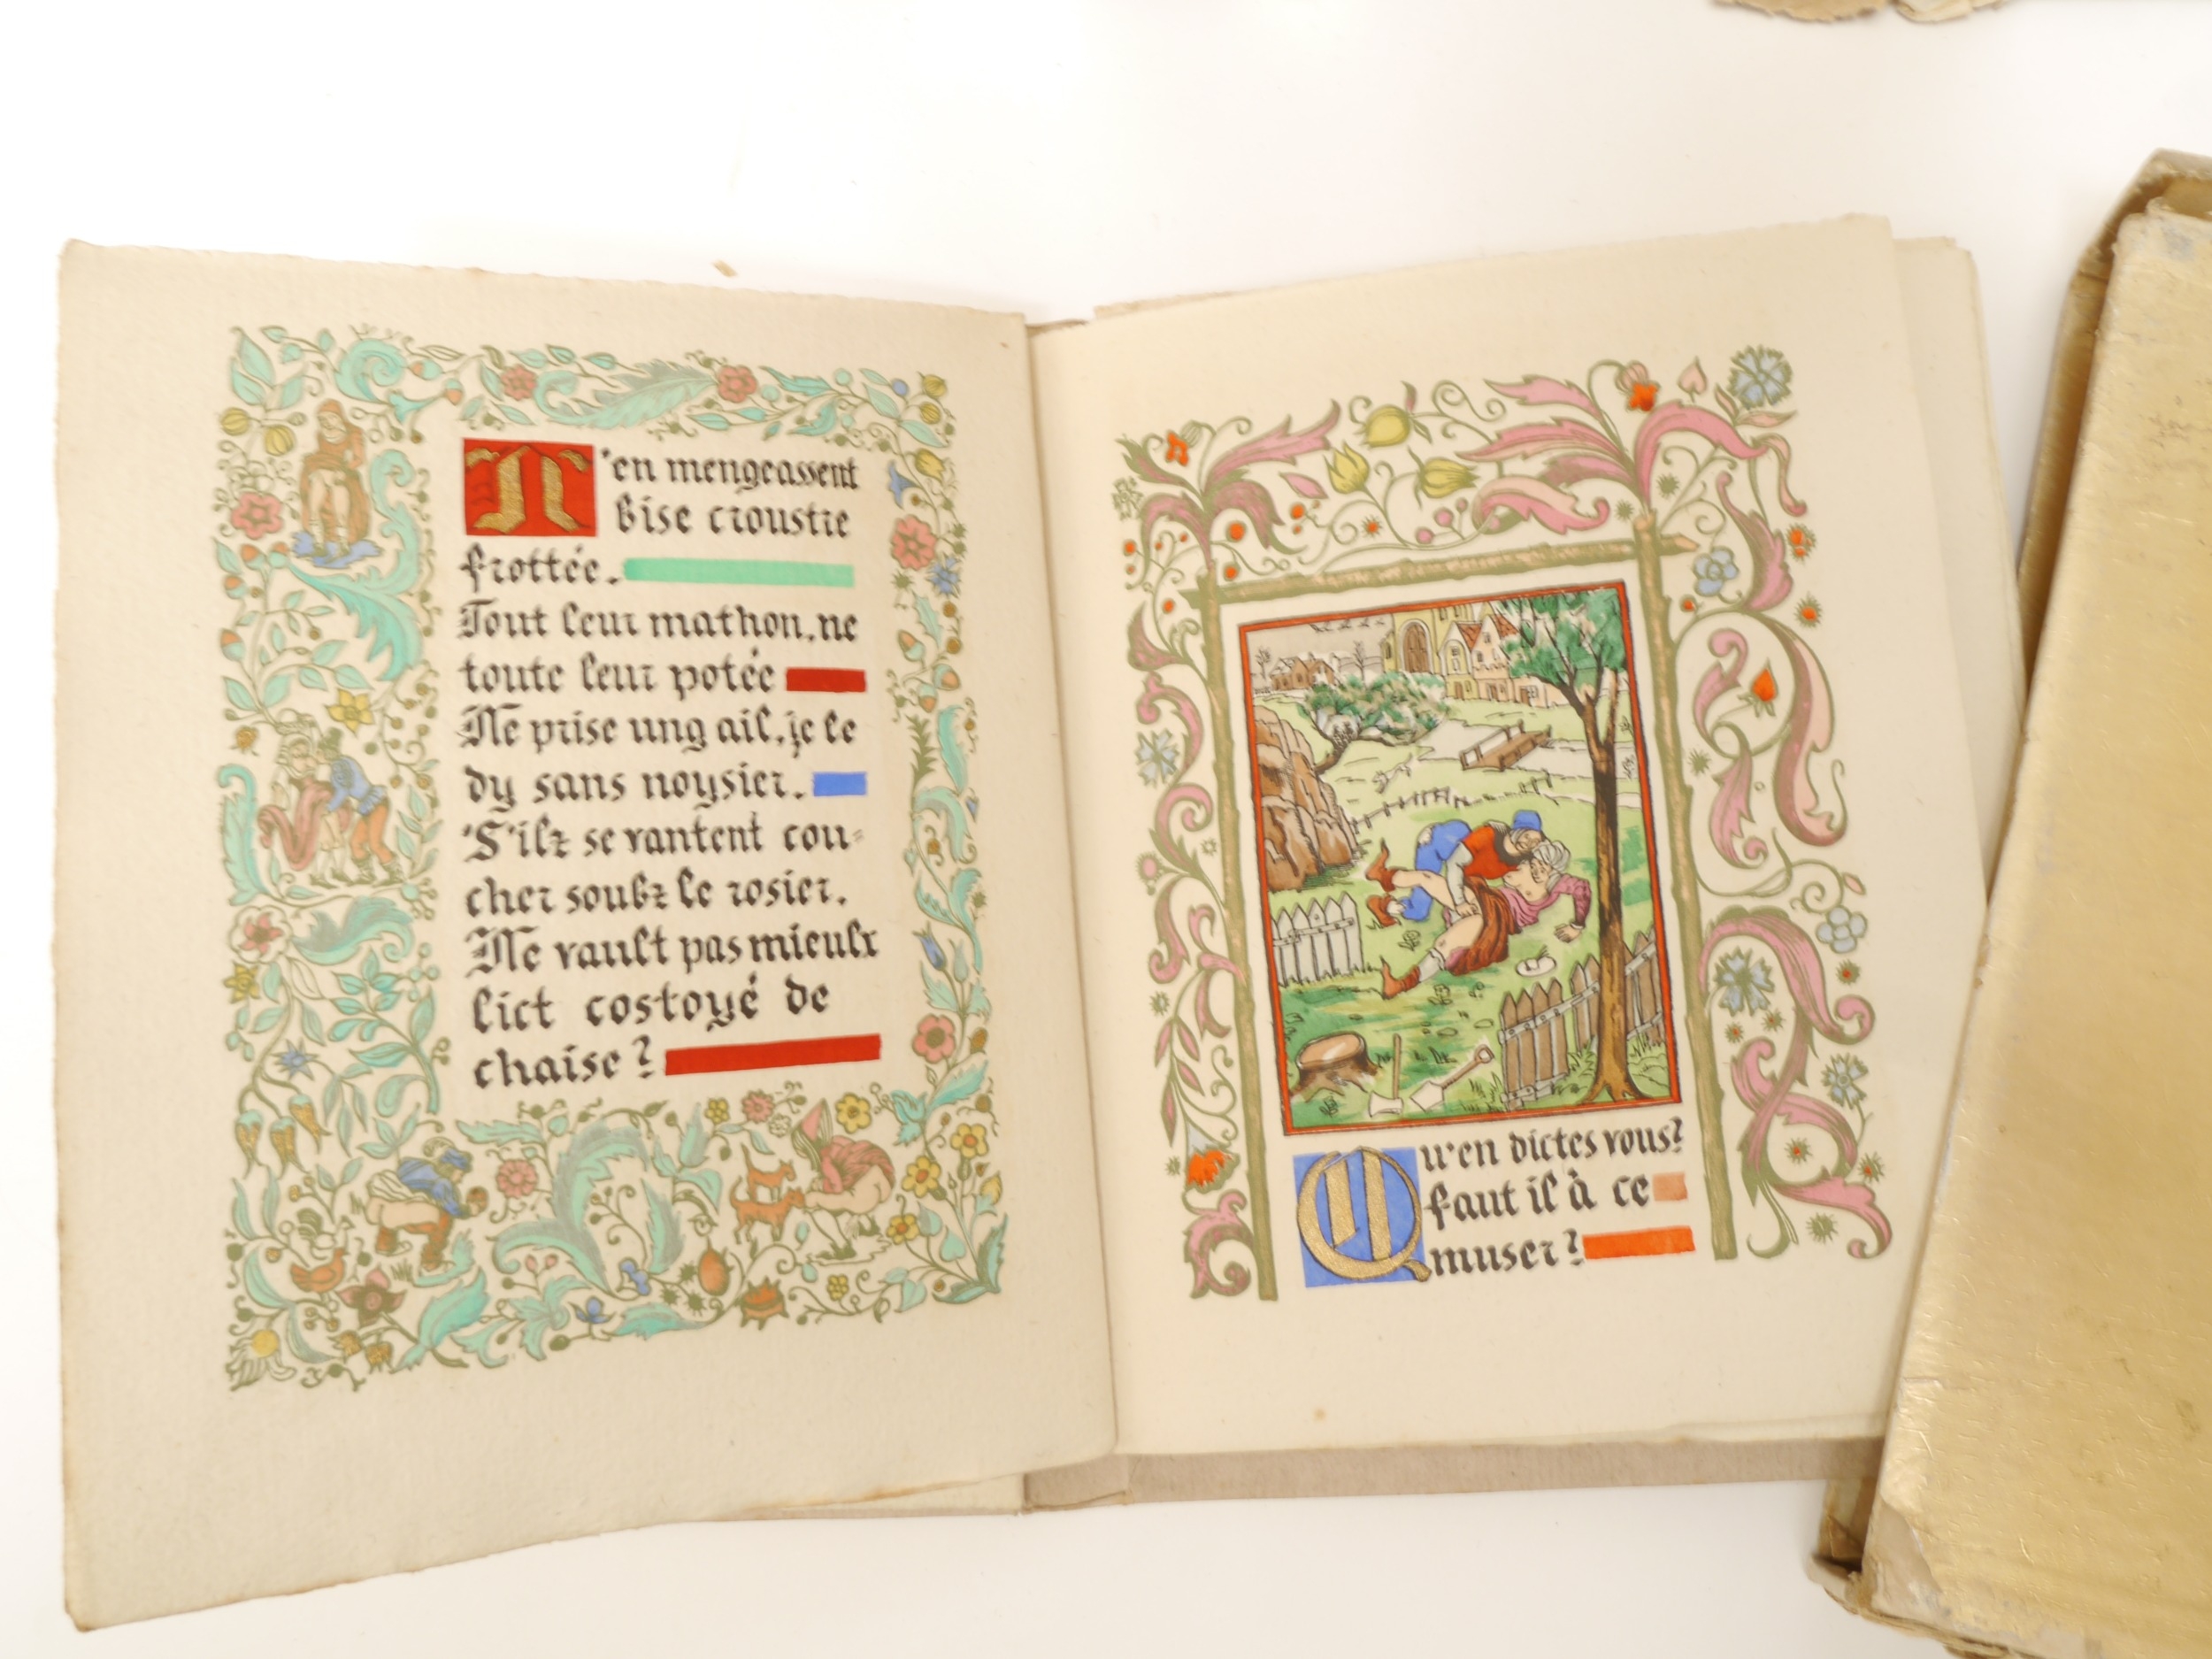 N'en mengeassent
bise croustre
frottée.
Tout leur mathon, ne
toute leur potée
Ne prise ung ail, je le
dy sans noysier.
S'ilz se vantent cou-
cher soubz le rosier.
Ne vault pas mieulx
lict costoyé de
chaise?
Qu'en dictes vous?
faut il à ce
muser?